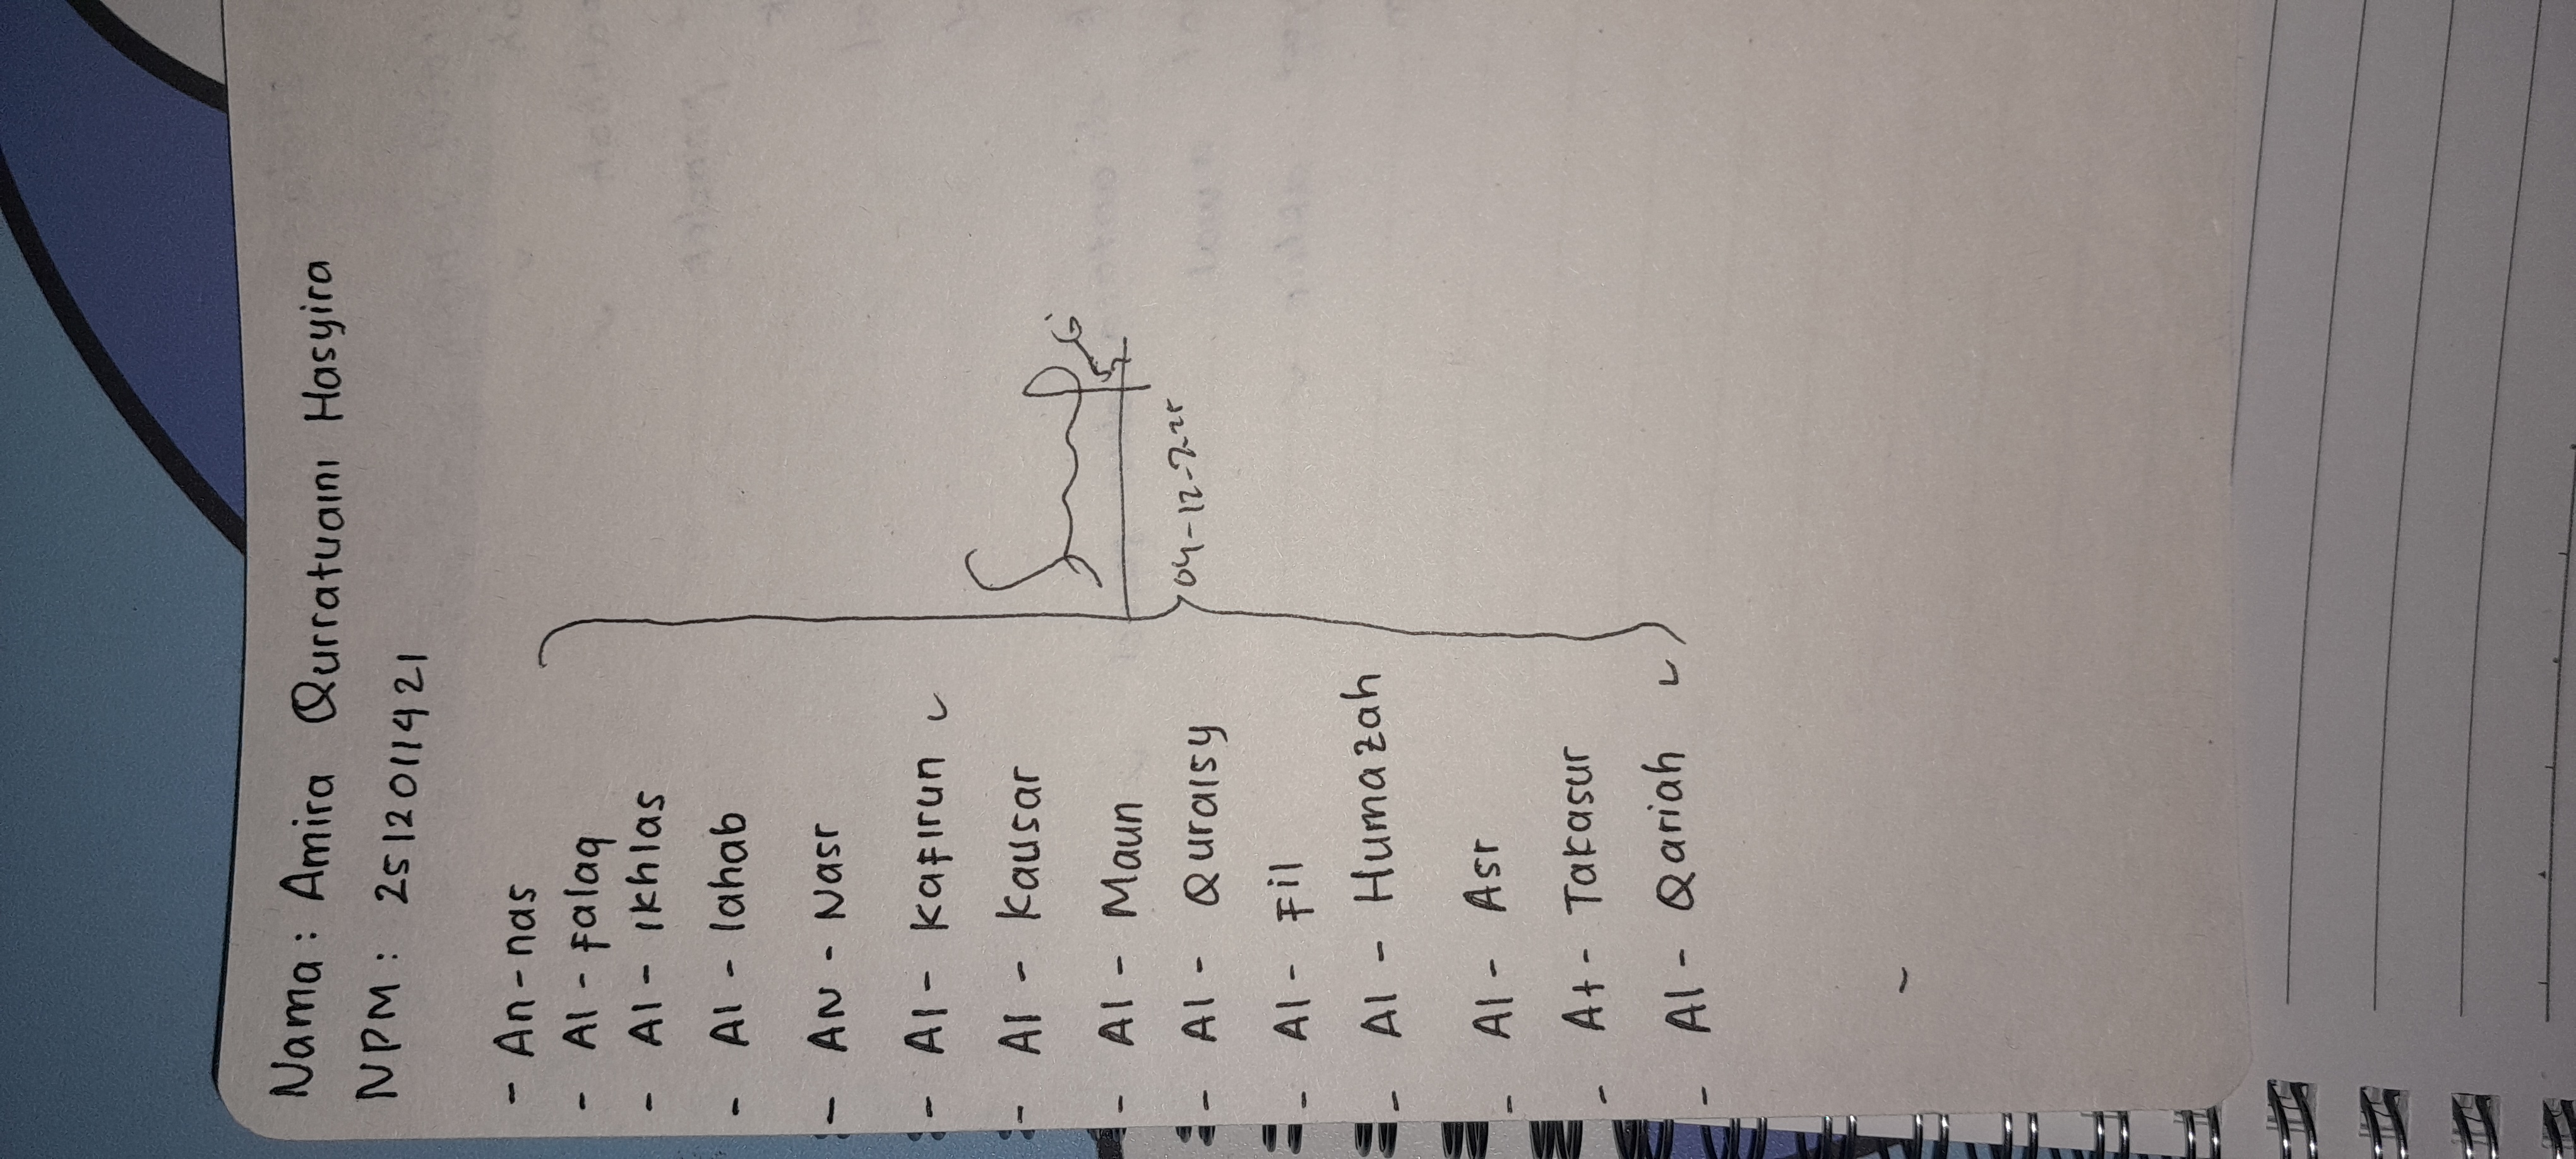 Nama : Amira Qurratuaini Hasyira
NPM : 2512011421
- An - nas
- Al - Falaq
- Al - Ikhlas
- Al - lahab
- AN - Nasr
- Al - Kafirun ✓
- Al - Kausar
- Al - Maun
- Al - Quraisy
- Al - Fil
- Al - Humazah
- Al - Asr
- At - Takasur
- Al - Qariah ✓
04-12-2025